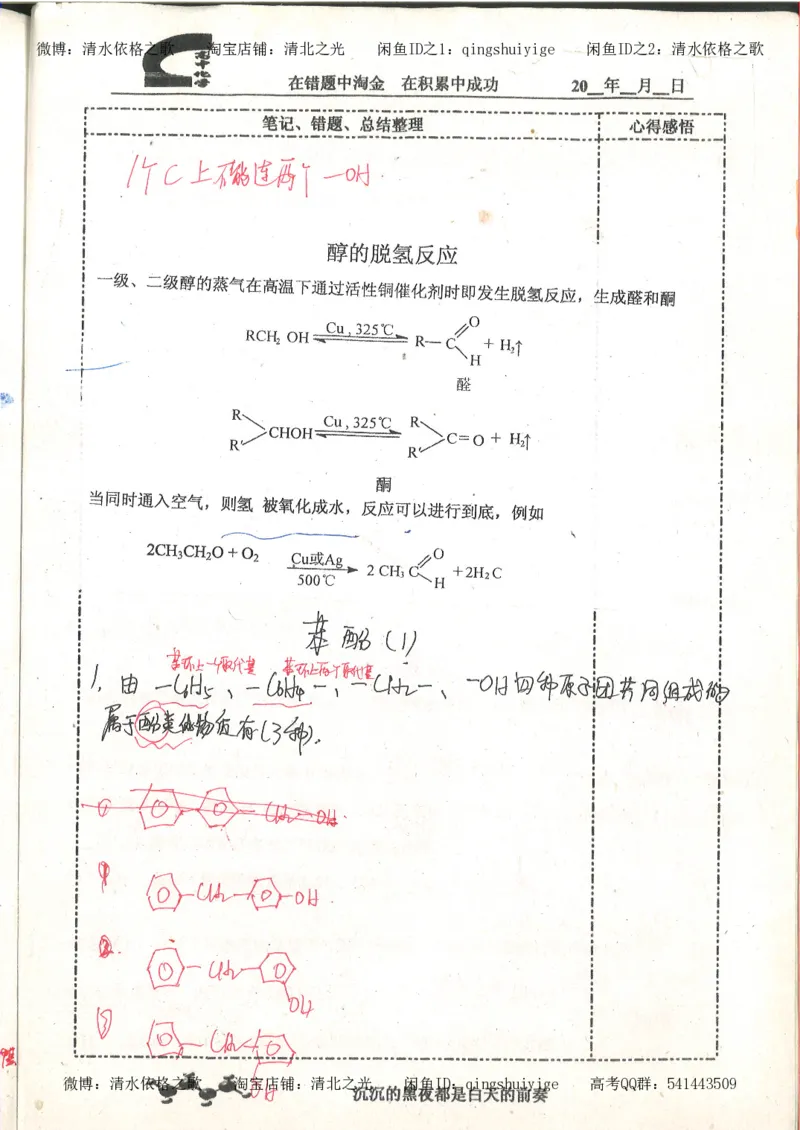 微博：清水依格之歌 淘宝店铺：清北之光 闲鱼ID之1：qingshuiyige 闲鱼ID之2：清水依格之歌
在错题中淘金 在积累中成功 20__年__月__日
笔记、错题、总结整理 心得感悟
1个C上不能连两个—OH.
醇的脱氢反应
一级、二级醇的蒸气在高温下通过活性铜催化剂时即发生脱氢反应，生成醛和酮
RCH₂ OH ⇌ Cu, 325℃ R—C O H + H₂↑
醛
R R′ CHOH ⇌ Cu, 325℃ R R′ C=O + H₂↑
酮
当同时通入空气，则氢 被氧化成水，反应可以进行到底，例如
2CH₃CH₂O + O₂ Cu或Ag 500℃ → 2 CH₃ C O H + 2H₂C
苯酚（1）
苯环上一个取代基 苯环上两个取代基
1. 由 —C₆H₅、—C₆H₄—、—CH₂—、—OH四种原子团共同组成的
属于酚类化物质有(3种).
—CH₂—OH.
① —CH₂— —OH.
②. —CH₂— OH
③ —CH₂— OH
微博：清水依格之歌 淘宝店铺：清北之光 闲鱼ID：qingshuiyige 高考QQ群：541443509
沉沉的黑夜都是白天的前奏